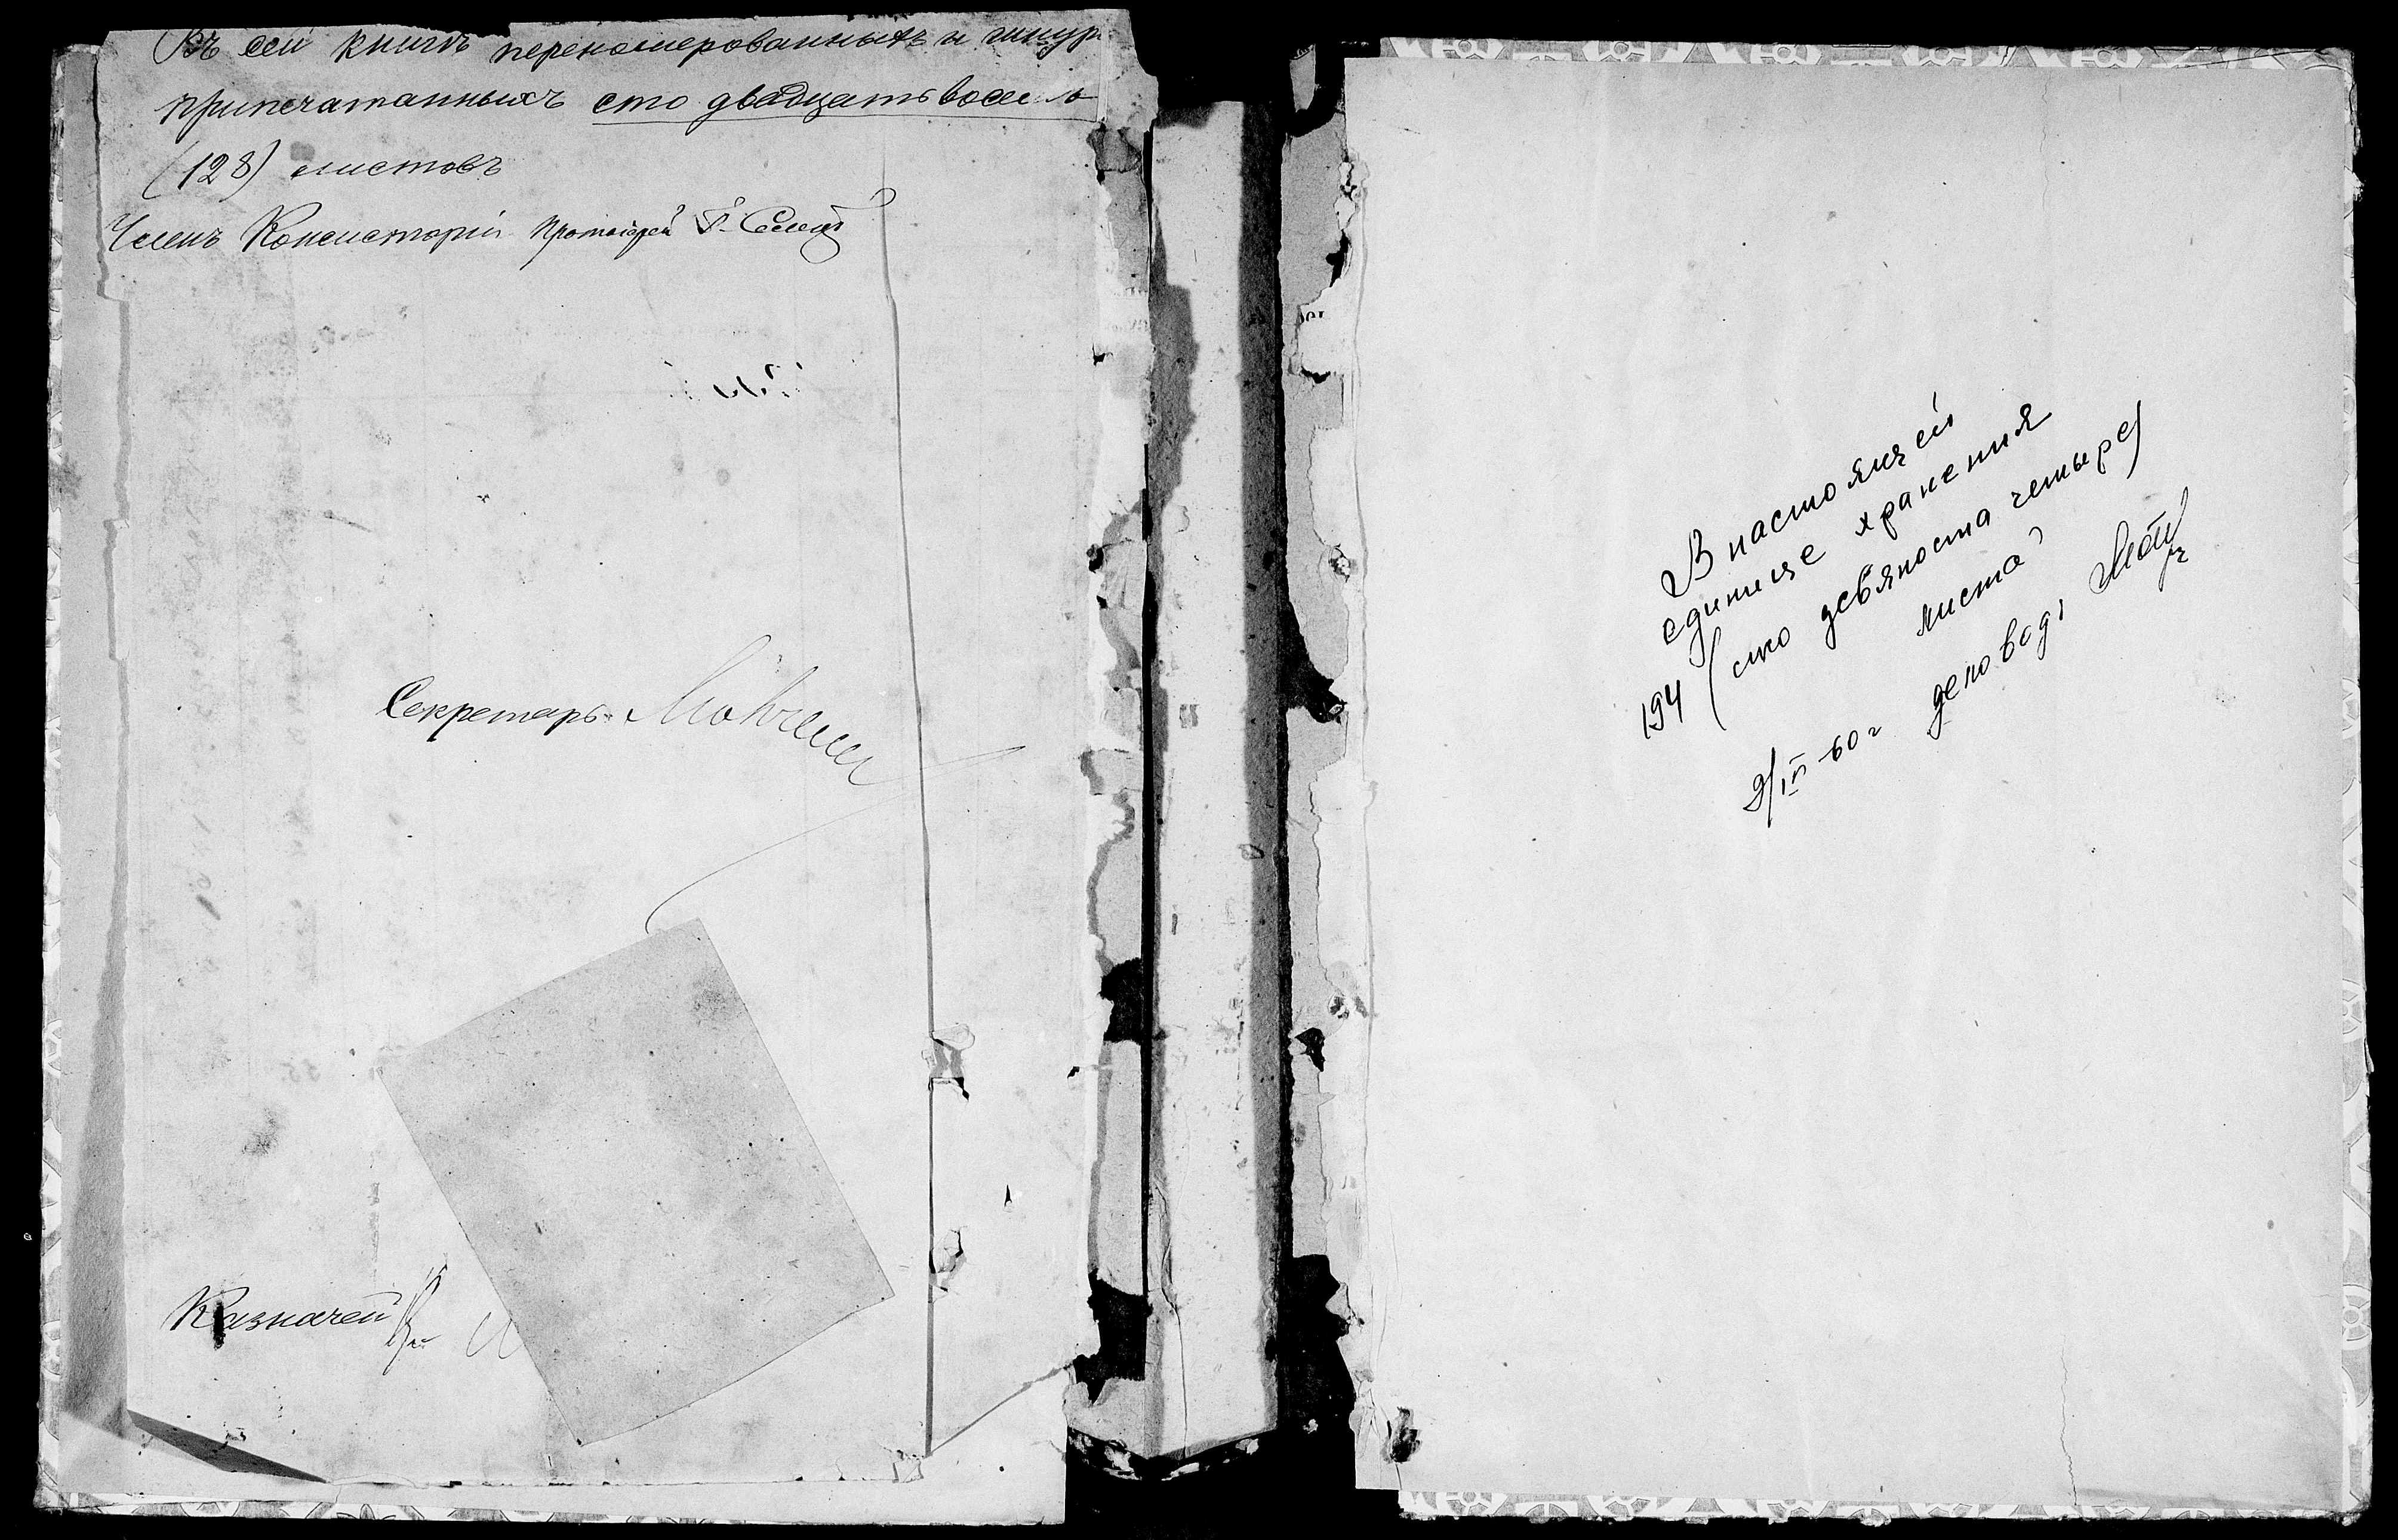 Въ сей книгѣ перенумерованныхъ и шнур
припечатанныхъ сто двадцать восемь
(128) листовъ
Членъ Консисторіи Протоіерей
Секретарь
Казначей
В настоящей
единице хранения
194 (сто девяносто четыре)
листа
9/IV-60 г деловод: